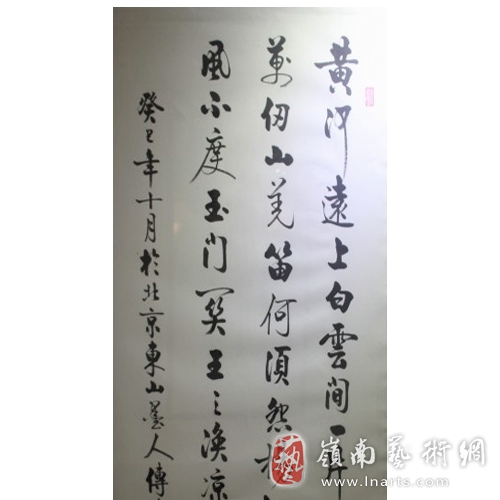 黄河遠上白雲間一片
萬仞山羌笛何須怨楊
風不度玉门関王之渙凉
癸巳年十月於北京東山墨人傅
藝
嶺南藝術網
www.lnarts.com